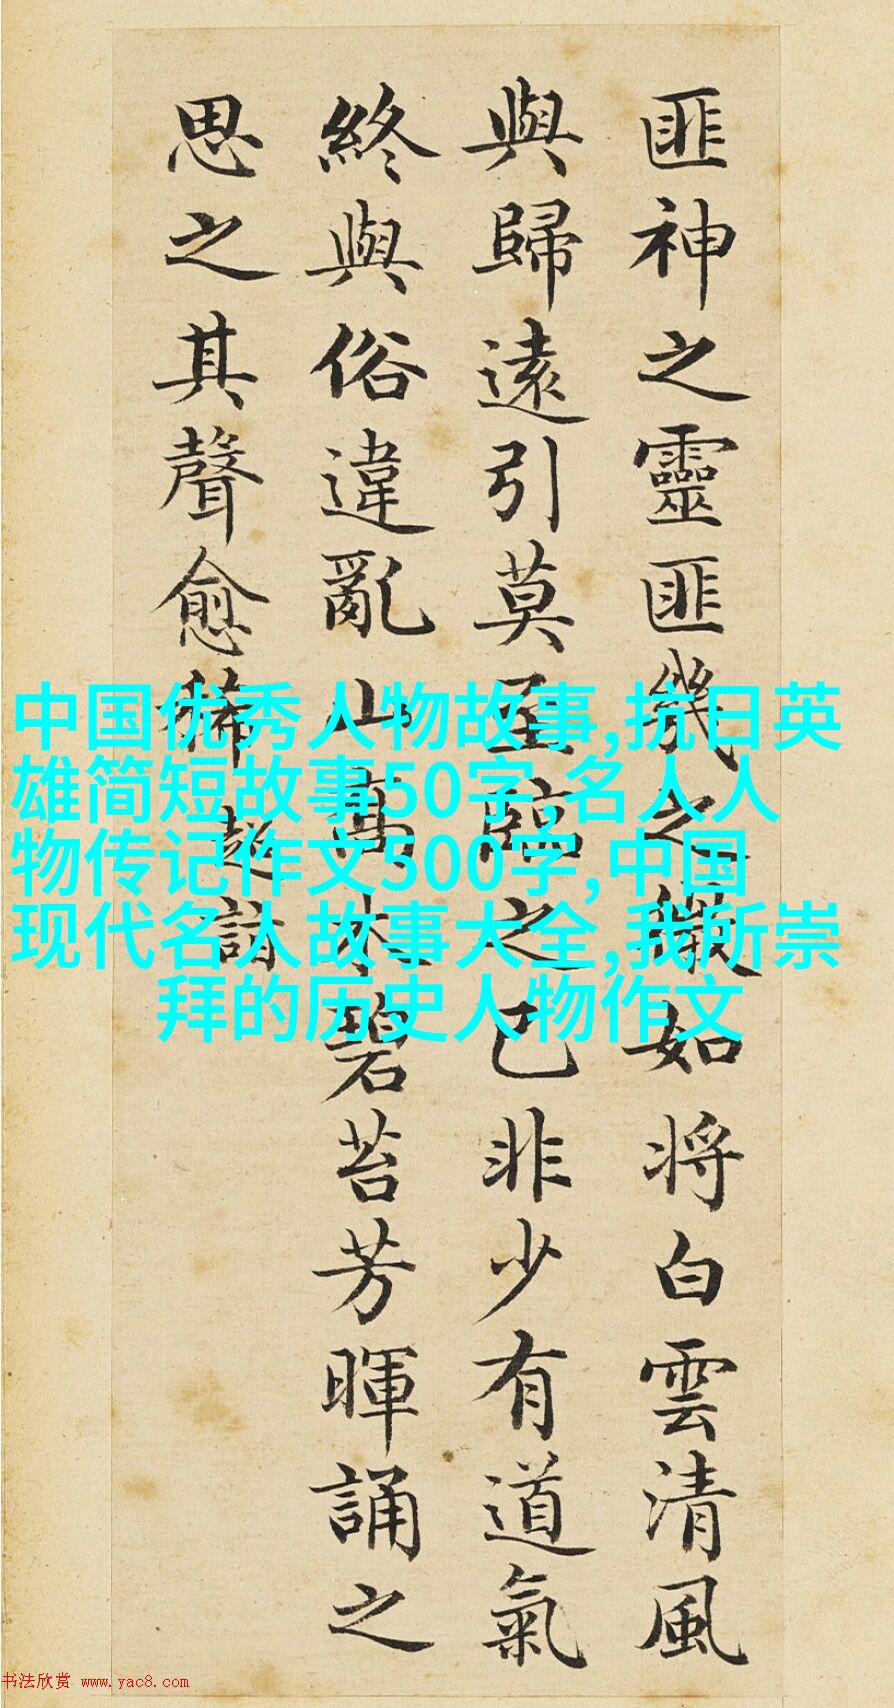 匪神之靈匪幾之微如将白雲清風
與歸遠引莫至臨之已非少有道氣
終與俗違亂山高木碧苔芳暉誦之
思之其聲愈稀 超詣
中国优秀人物故事,抗日英
雄简短故事50字,名人人
物传记作文500字,中国
现代名人故事大全,我所崇
拜的历史人物作文
书法欣赏 www.yac8.com